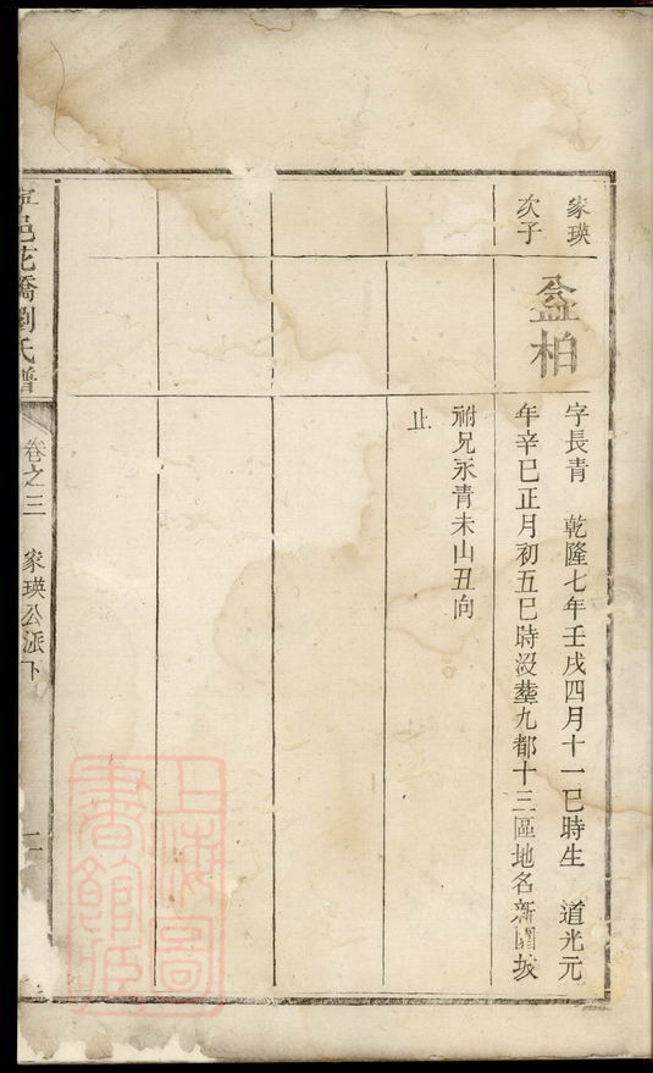 家瑛
次子
㿽柏
字長青　乾隆七年壬戌四月十一巳時生　道光元
年辛巳正月初五巳時沒葬九都十三區地名新圍坡
祔兄永青未山丑向
止
寧邑花橋劉氏譜
卷之三　家瑛公派下
二
上海圖
書館藏